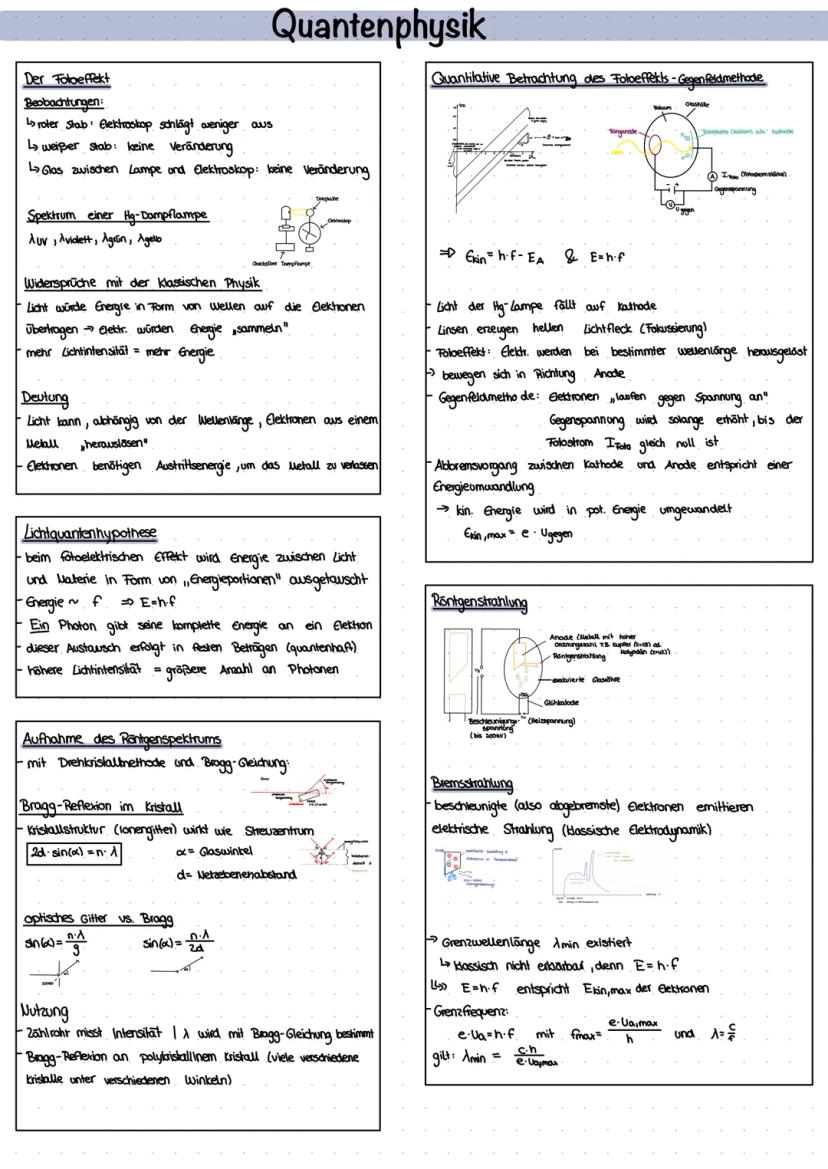 Quantenphysik
Der Fotoeffekt
Beobachtungen:
↳ roter Stab: Elektroskop schlägt weniger aus
↳ weißer Stab: keine Veränderung
↳ Glas zwischen Lampe und Elektroskop: keine Veränderung
Spektrum einer Hg-Dampflampe
λUV, λviolett, λgrün, λgelb
Zinkplatte
Elektroskop
Quecksilber Dampflampe
Widersprüche mit der klassischen Physik
- Licht würde Energie in Form von Wellen auf die Elektronen
übertragen → Elektr. würden Energie „sammeln"
- mehr Lichtintensität = mehr Energie
Deutung
- Licht kann, abhängig von der Wellenlänge, Elektronen aus einem
Metall „herauslösen"
- Elektronen benötigen Austrittsenergie, um das Metall zu verlassen
Lichtquantenhypothese
- beim fotoelektrischen Effekt wird Energie zwischen Licht
und Materie in Form von „Energieportionen" ausgetauscht
- Energie ~ f ⇒ E=h·f
- Ein Photon gibt seine komplette Energie an ein Elektron
- dieser Austausch erfolgt in festen Beträgen (quantenhaft)
- höhere Lichtintensität = größere Anzahl an Photonen
Aufnahme des Röntgenspektrums
- mit Drehkristallmethode und Bragg-Gleichung:
Bragg-Reflexion im Kristall
- Kristallstruktur (Ionengitter) wirkt wie Streuzentrum
2d·sin(α) = n·λ
α = Glaswinkel
d = Netzebenenabstand
optisches Gitter vs. Bragg
sin(α) = n·λ/g
sin(α) = n·λ/2d
Nutzung
- Zählrohr misst Intensität | λ wird mit Bragg-Gleichung bestimmt
- Bragg-Reflexion an polykristallinem Kristall (viele verschiedene
Kristalle unter verschiedenen Winkeln)
Quantitative Betrachtung des Fotoeffekts - Gegenfeldmethode
Vakuum
Glashülle
Ringanode
Fotoplatte (Kalium) als Kathode
I Foto (Fotostromstärke)
Gegenspannung
U gegen
⇒ Ekin = h·f - EA & E=h·f
- Licht der Hg-Lampe fällt auf Kathode
- Linsen erzeugen hellen Lichtfleck (Fokussierung)
- Fotoeffekt: Elektr. werden bei bestimmter Wellenlänge herausgelöst
→ bewegen sich in Richtung Anode
- Gegenfeldmethode: Elektronen „laufen gegen Spannung an"
Gegenspannung wird solange erhöht, bis der
Fotostrom IFoto gleich null ist
- Abbremsvorgang zwischen Kathode und Anode entspricht einer
Energieumwandlung
→ kin. Energie wird in pot. Energie umgewandelt
Ekin,max = e · Ugegen
Röntgenstrahlung
Anode (Metall mit hoher
Ordnungszahl, z.B. Kupfer
Röntgenstrahlung
evakuierte Glasröhre
Glühkatode
Beschleunigungs-
spannung
(bis 200kV)
(Heizspannung)
Bremsstrahlung
- beschleunigte (also abgebremste) Elektronen emittieren
elektrische Strahlung (klassische Elektrodynamik)
→ Grenzwellenlänge λmin existiert
↳ klassisch nicht erklärbar, denn E = h·f
↳> E=h·f entspricht Ekin,max der Elektronen
- Grenzfrequenz:
e·Ua = h·f mit fmax = e·Ua,max/h und λ = c/f
gilt: λmin = c·h/e·Ua,max